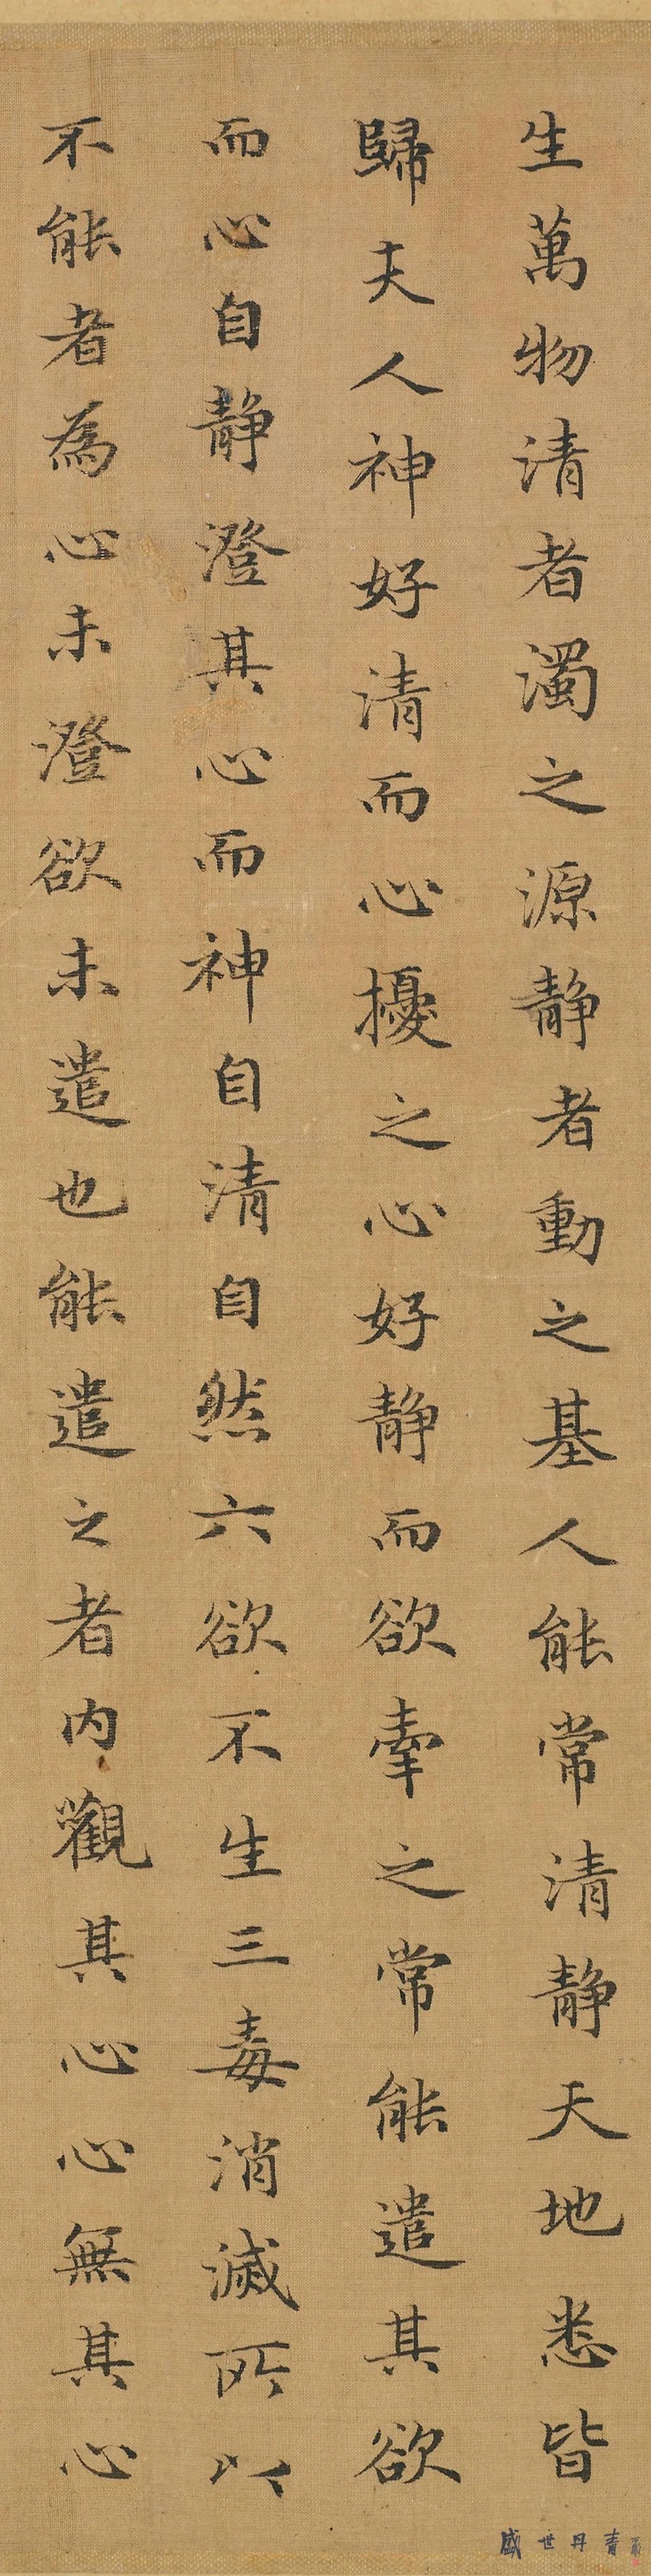 生萬物清者濁之源静者動之基人能常清静天地悉皆
歸夫人神好清而心擾之心好静而欲牽之常能遣其欲
而心自静澄其心而神自清自然六欲不生三毒消滅所以
不能者為心未澄欲未遣也能遣之者内觀其心心無其心
盛世丹青